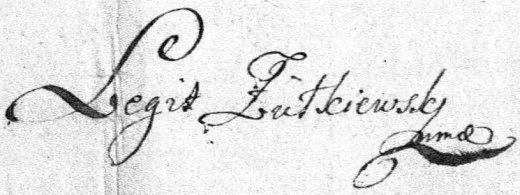 Legit Zutkiewsky
mæ